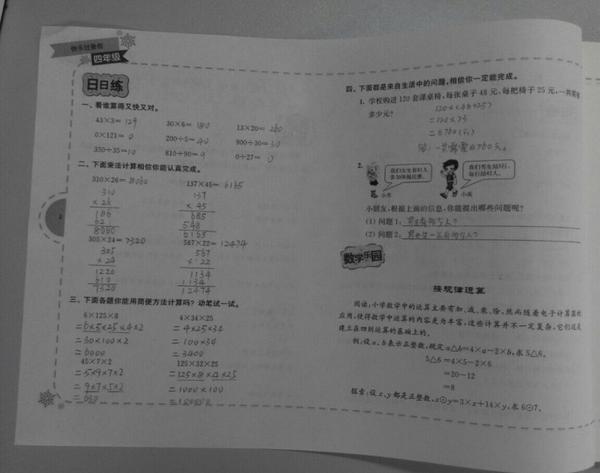 快乐过暑假
四年级
日日练
一、看谁算得又快又对。
43×3=129 30×6=180 13×20=260
0×121=0 200÷5=40 900÷30=30
350÷35=10 810÷90=9 0÷27=0
二、下面乘法计算相信你能认真完成。
310×26=8060 137×45=6165
310 137
×26 ×45
186 685
621 548
8060 6165
305×24=7320 567×22=12474
305 567
×24 ×22
1220 1134
610 1134
7320 12474
三、下面各题你能用简便方法计算吗？动笔试一试。
6×125×8 4×34×25
=6×5×25×4×2 =4×25×34
=30×100×2 =100×34
=6000 =3400
45×7×2 125×32×25
=5×9×7×2 =125×8×4×25
=9×7×5×2 =1000×100
=630
四、下面都是来自生活中的问题,相信你一定能完成。
1. 学校购进120套课桌椅,每张桌子48元,每把椅子25元,一共需要
多少元?
=120×73
=8760(元)
2.
我们女生有41人
小芳
我们男生站5行，
小英
小朋友,根据上面的信息,你能提出哪些问题呢?
(1) 问题1:
(2) 问题2:
数学乐园
按规律运算
阅读:小学数学中的运算主要有加、减、乘、除,然而随着电子计算器的
应用,使得数学中运算的内容更为丰富,这些计算并不一定复杂,它们还是
建立在四则运算的基础上的。
例:设a、b表示正整数,规定a△b=4×a-2×b,求5△6。
5△6=4×5-2×6
=20-12
=8
探索:设x、y都是正整数,x⊙y=3×x+14×y,求6⊙7。